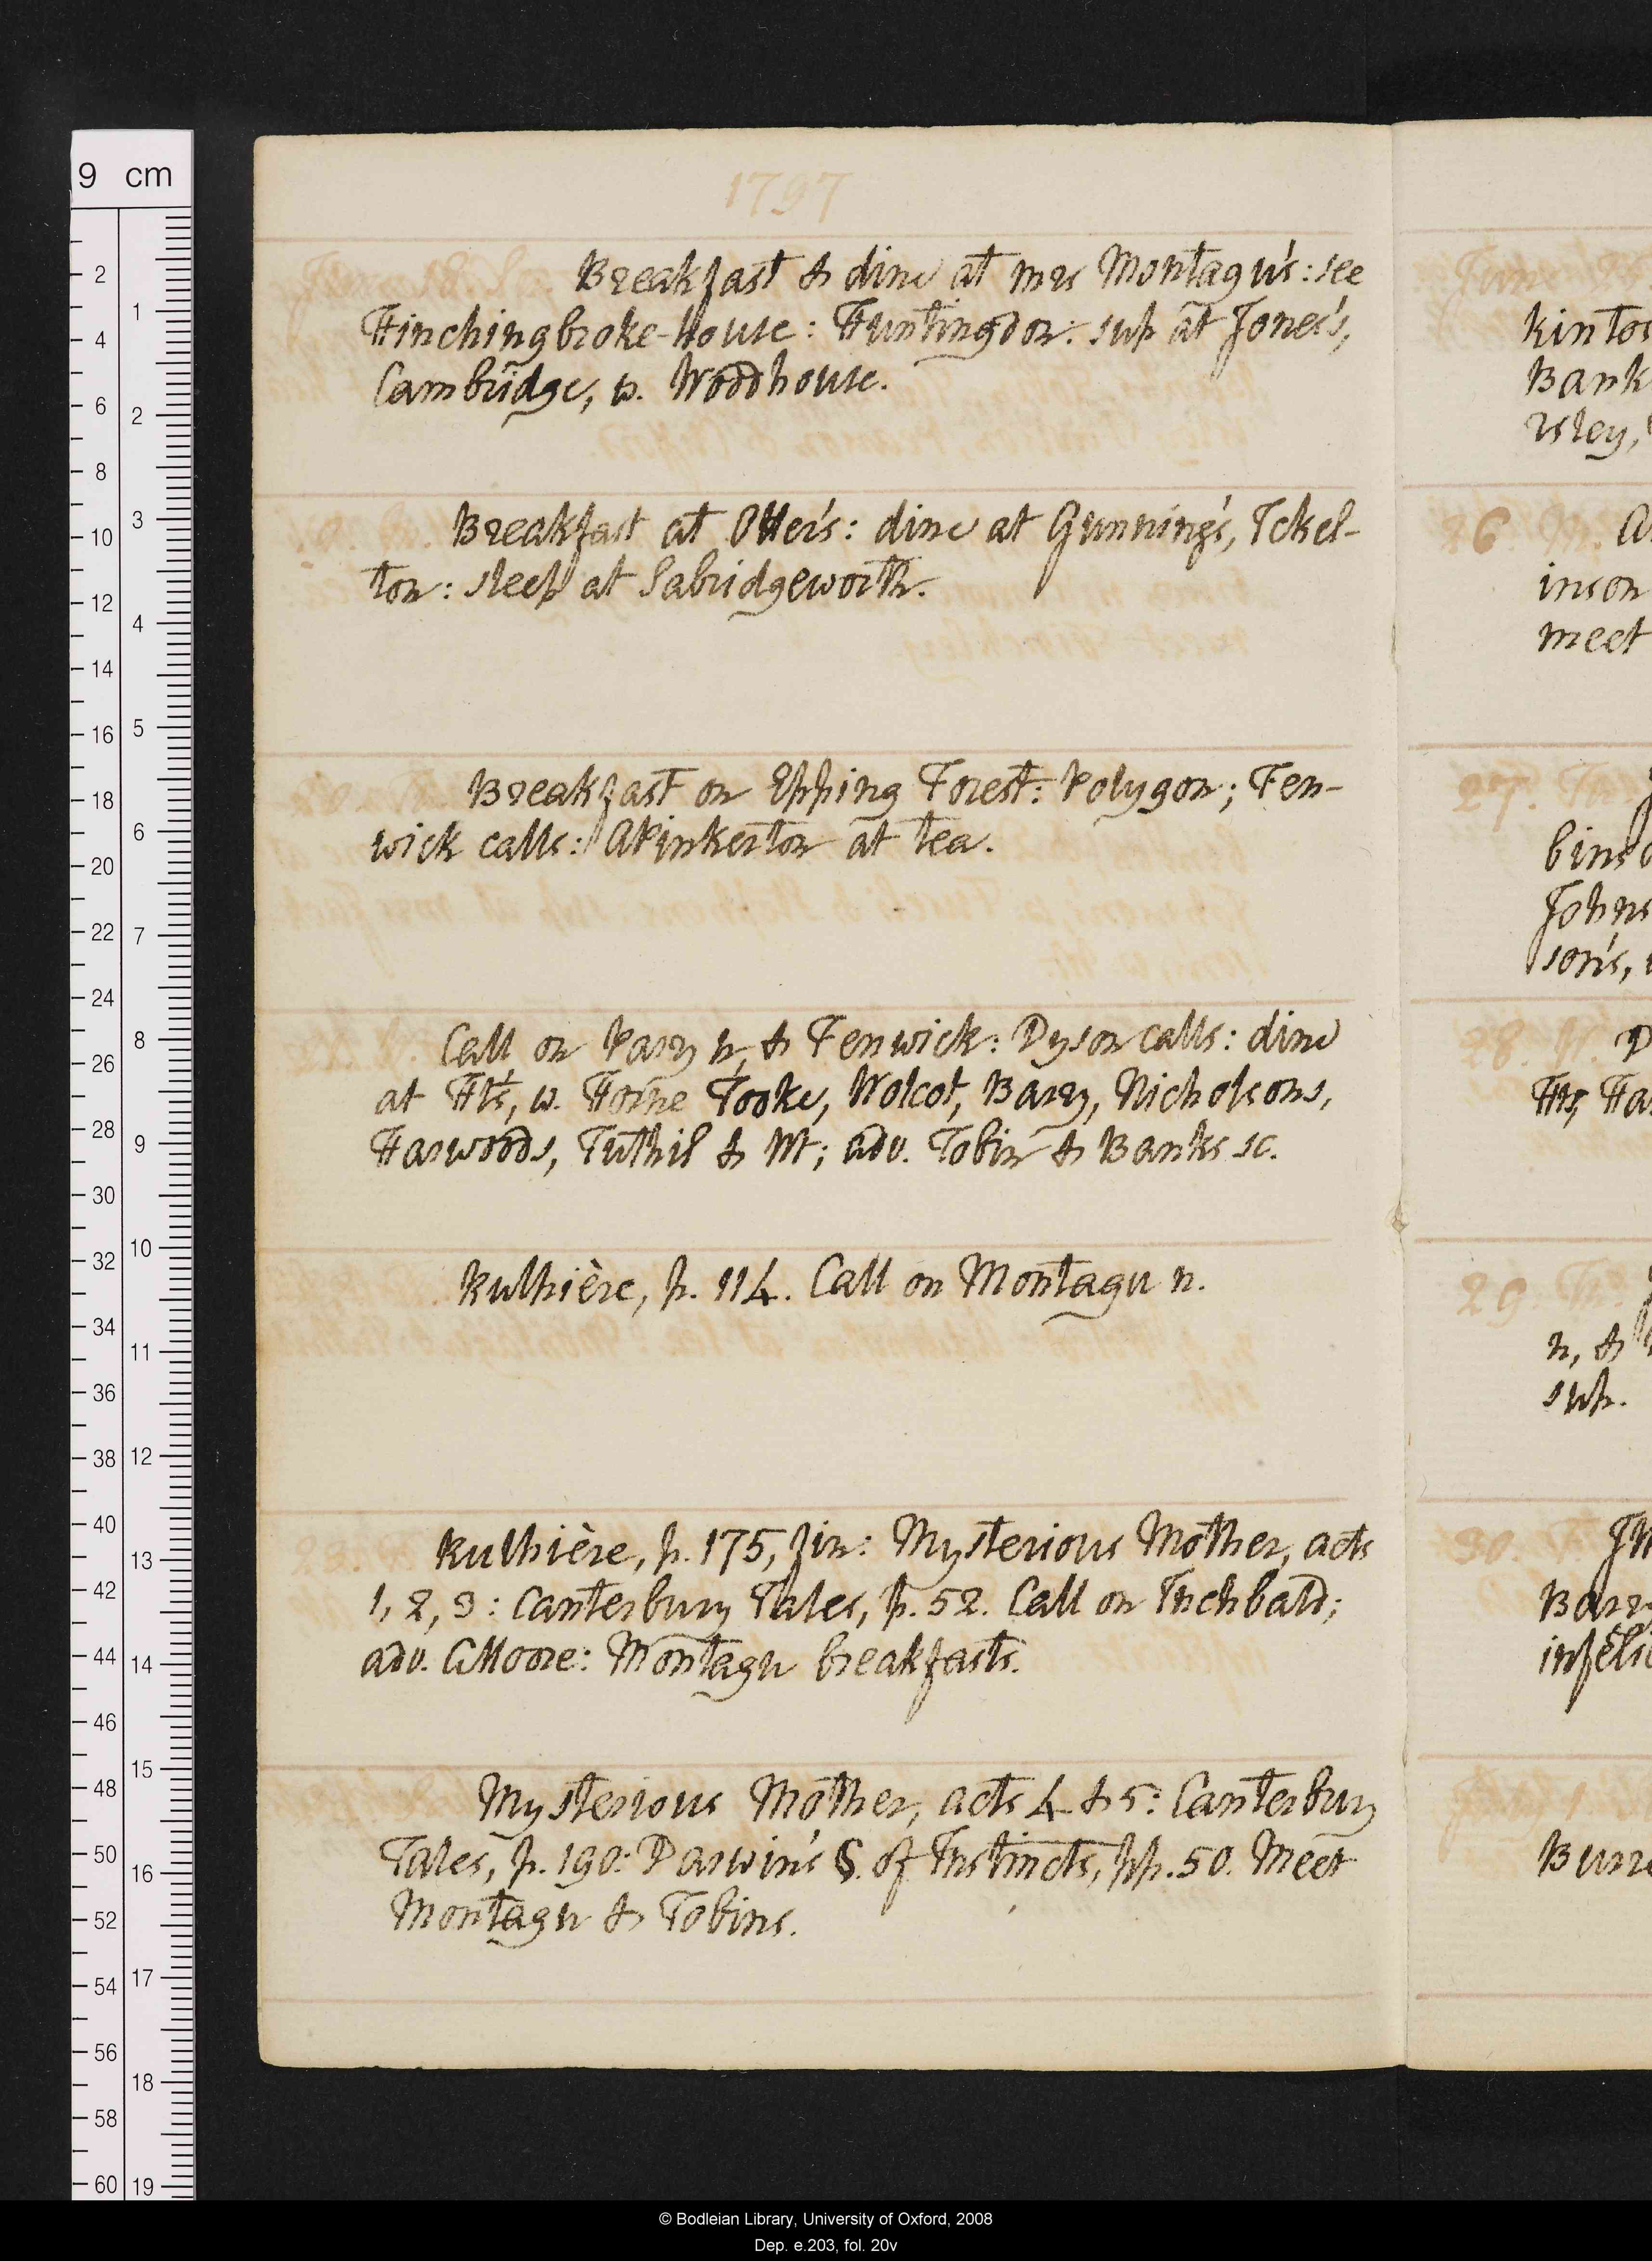 1797
Breakfast & dine at mrs Montagu's: see
Hinchingbroke-House: Huntingdon: sup at Jones's,
Cambridge, w. Woodhouse.
Breakfast at Otter's: dine at Gunning's, Ickel-
ton: sleep at Sabridgeworth.
Breakfast on Epping Forest: Polygon; Fen-
wick calls: APinkerton at tea.
Call on Parry n, & Fenwick: Dyson calls: dine
at Ht's, w. Horne Tooke, Wolcot, Barry, Nicholsons,
Harwoods, Tuthil & Mt; adv. Tobin & Banks sc.
Rulhière, p. 114. Call on Montagu n.
Rulhière, p. 175, fin: Mysterious Mother, acts
1, 2, 3: Canterbury Tales, p. 52. Call on Inchbald;
adv. GMoore: Montagu breakfasts.
Mysterious Mother, acts 4 & 5: Canterbury
Tales, p. 190: Darwin's S. of Instincts, pp. 50. Meet
Montagu & Tobins.
kintos
Bank
rsley,
26
inson
meet
27.
bins
Johns
son's,
28.
Hts, Ha
29
n, &
sup.
30.
Barr
infelic
Burr
9 cm
2 4 6 8 10 12 14 16 18 20 22 24 26 28 30 32 34 36 38 40 42 44 46 48 50 52 54 56 58 60
1 2 3 4 5 6 7 8 9 10 11 12 13 14 15 16 17 18 19
© Bodleian Library, University of Oxford, 2008
Dep. e.203, fol. 20v